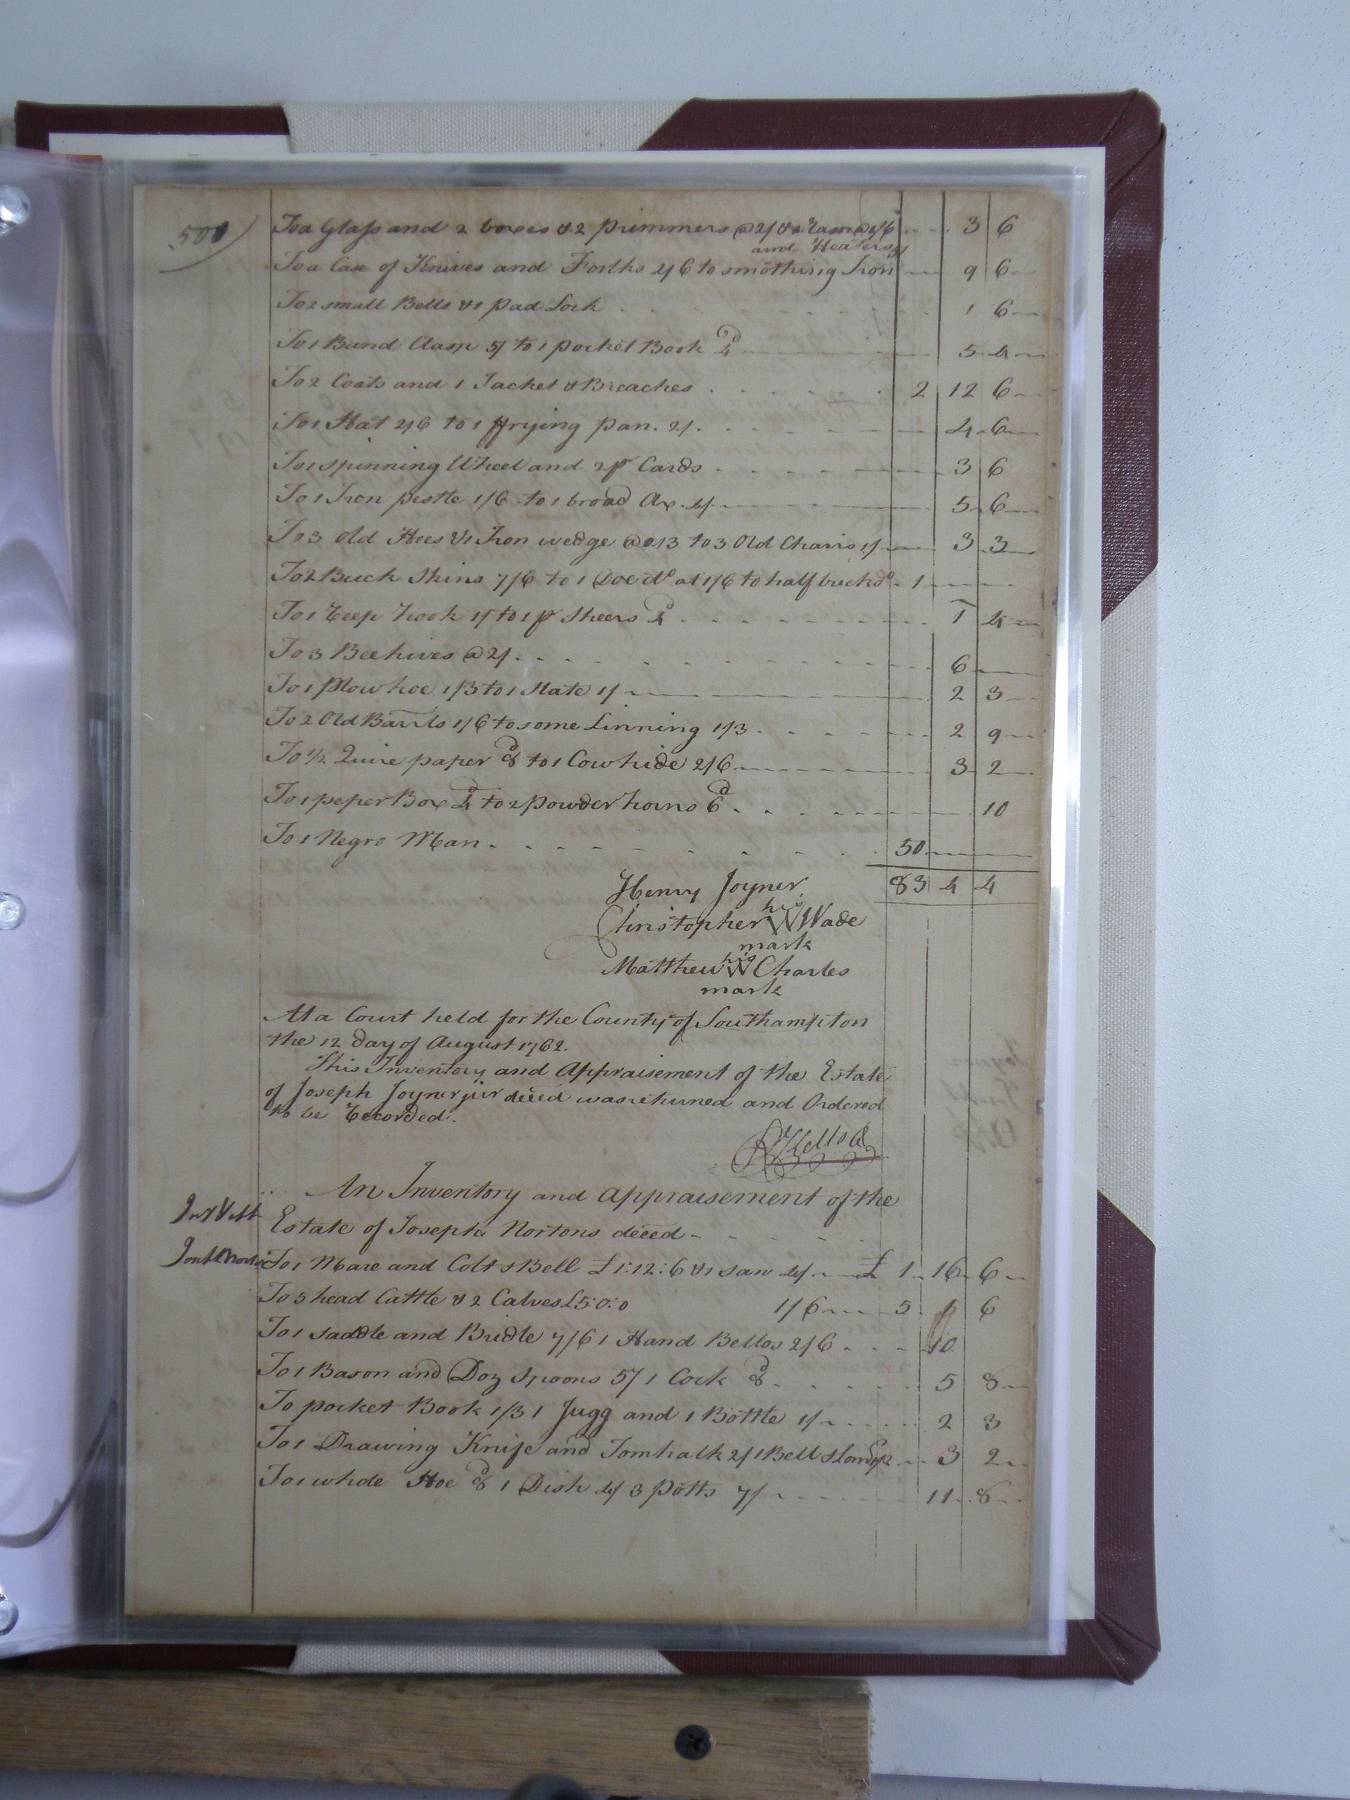 500)
To a Glass and 2 boxes & 2 primmers @ 2/ & 2 @ 1/6 - - - 3 6
and Heaters
To a Case of Knives and Forlks 2/6 to smothing Iron - 9 6
To 2 small Bells & 1 pad Lock - - - 1 6
To 1 Band Clasp 5/ to 1 pocket Book 4d - 5 4
To 2 Coats and 1 Jacket & Breaches - - - 2 12 6
To 1 Hat 2/6 to 1 ffrying pan 2/ - - - 4 6
To 1 spinning Wheel and 2 pr Cards - - - 3 6
To 1 Iron pestle 1/6 to 1 broad Ax 4/ - 5 6
To 3 Old Hoes & 1 Iron wedge @ 2/3 to 3 Old Chairs 1/ - 3 3
To 2 Buck Skins 7/6 to 1 Doe do at 1/6 to half buck do - 1
To 1 Reep hook 1/ to 1 pr Sheers 4d - - - 1 4
To 3 Beehives @ 2/ - - - 6
To 1 Plow hoe 1/3 to 1 Slate 1/ - 2 3
To 2 Old Barrils 1/6 to some Linning 1/3 - - - 2 9
To 1/2 Quire paper 8d to 1 Cowhide 2/6 - 3 2
To 1 peper Box 4d to 2 powder horns 6d - - - 10
To 1 Negro Man - - - 50
83 4 4
Henry Joyner
Christopher his W Wade
mark
Matthew his W Charles
mark
At a Court held for the County of Southampton
the 12 day of August 1762.
This Inventory and Appraisement of the Estate
of Joseph Joyner jur deced was returned and Ordered
to be Recorded.
R Kello
An Inventory and Appraisement of the
Estate of Joseph Nortons deced - - -
To 1 Mare and Colt & Bell £1:12:6 & 1 saw 4/ - £ 1 16 6
To 5 head Cattle & 2 Calves £5:0:0 1/6 - 5 1 6
To 1 saddle and Bridle 7/6 1 Hand Bellos 2/6 - - - 10
To 1 Bason and Doz Spoons 5/ 1 Cock 8d - - - 5 8
To pocket Book 1/3 1 Jugg and 1 Bottle 1/ - - - 2 3
To 1 Drawing Knife and Tomhalk 2/ 1 Bell - - 3 2
To 1 whole Hoe 8d 1 Dish 4/ 3 Potts 7/ - - - 11 8